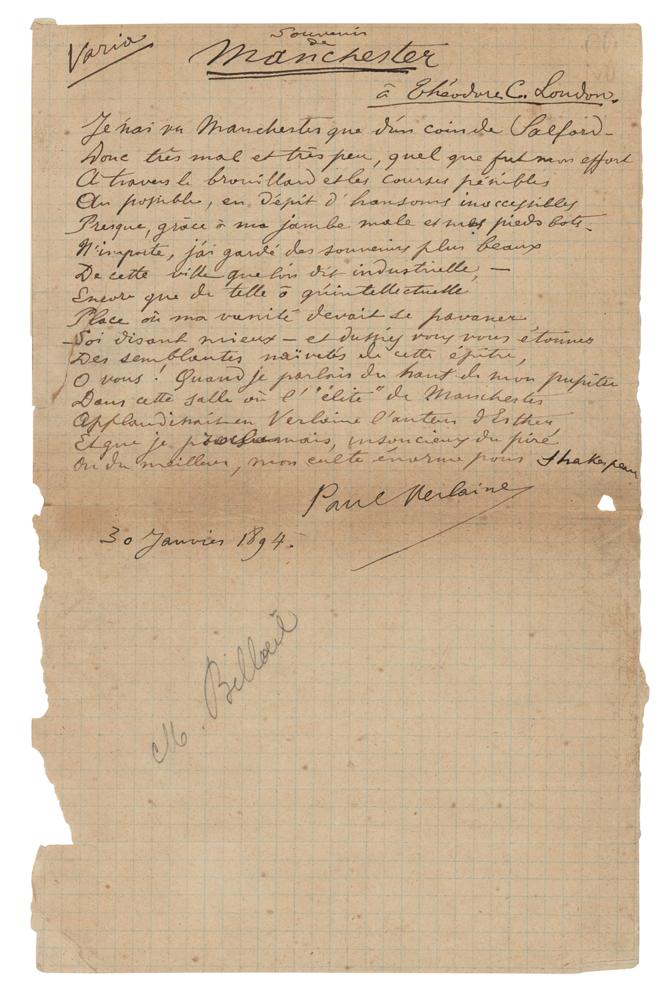 Varia
Souvenir
de
Manchester
à Théodore C. London.
Je n'ai vu Manchester que d'un coin de Salford –
Donc très mal et très peu, quel que fut mon effort
A travers le brouillard et les courses pénibles
Au possible, en dépit d'hansoms inaccessibles
Presque, grâce à ma jambe male et mes pieds bots.
N'importe, j'ai gardé des souvenirs plus beaux
De cette ville que l'on dit industrielle, –
Encore que de telle ô qu'intellectuelle
Place où ma vanité devait se pavaner
Soi disant mieux – et dussiez vous vous étonner
Des semblantes naïvetés de cette épître,
O vous ! Quand je parlais du haut de mon pupitre
Dans cette salle où l'"élite" de Manchester
Applaudissait en Verlaine l'auteur d'Esther,
Et que je proclamais, insoucieux du pire
Ou du meilleur, mon culte énorme pour Shakspeare
Paul Verlaine
30 Janvier 1894.
M.